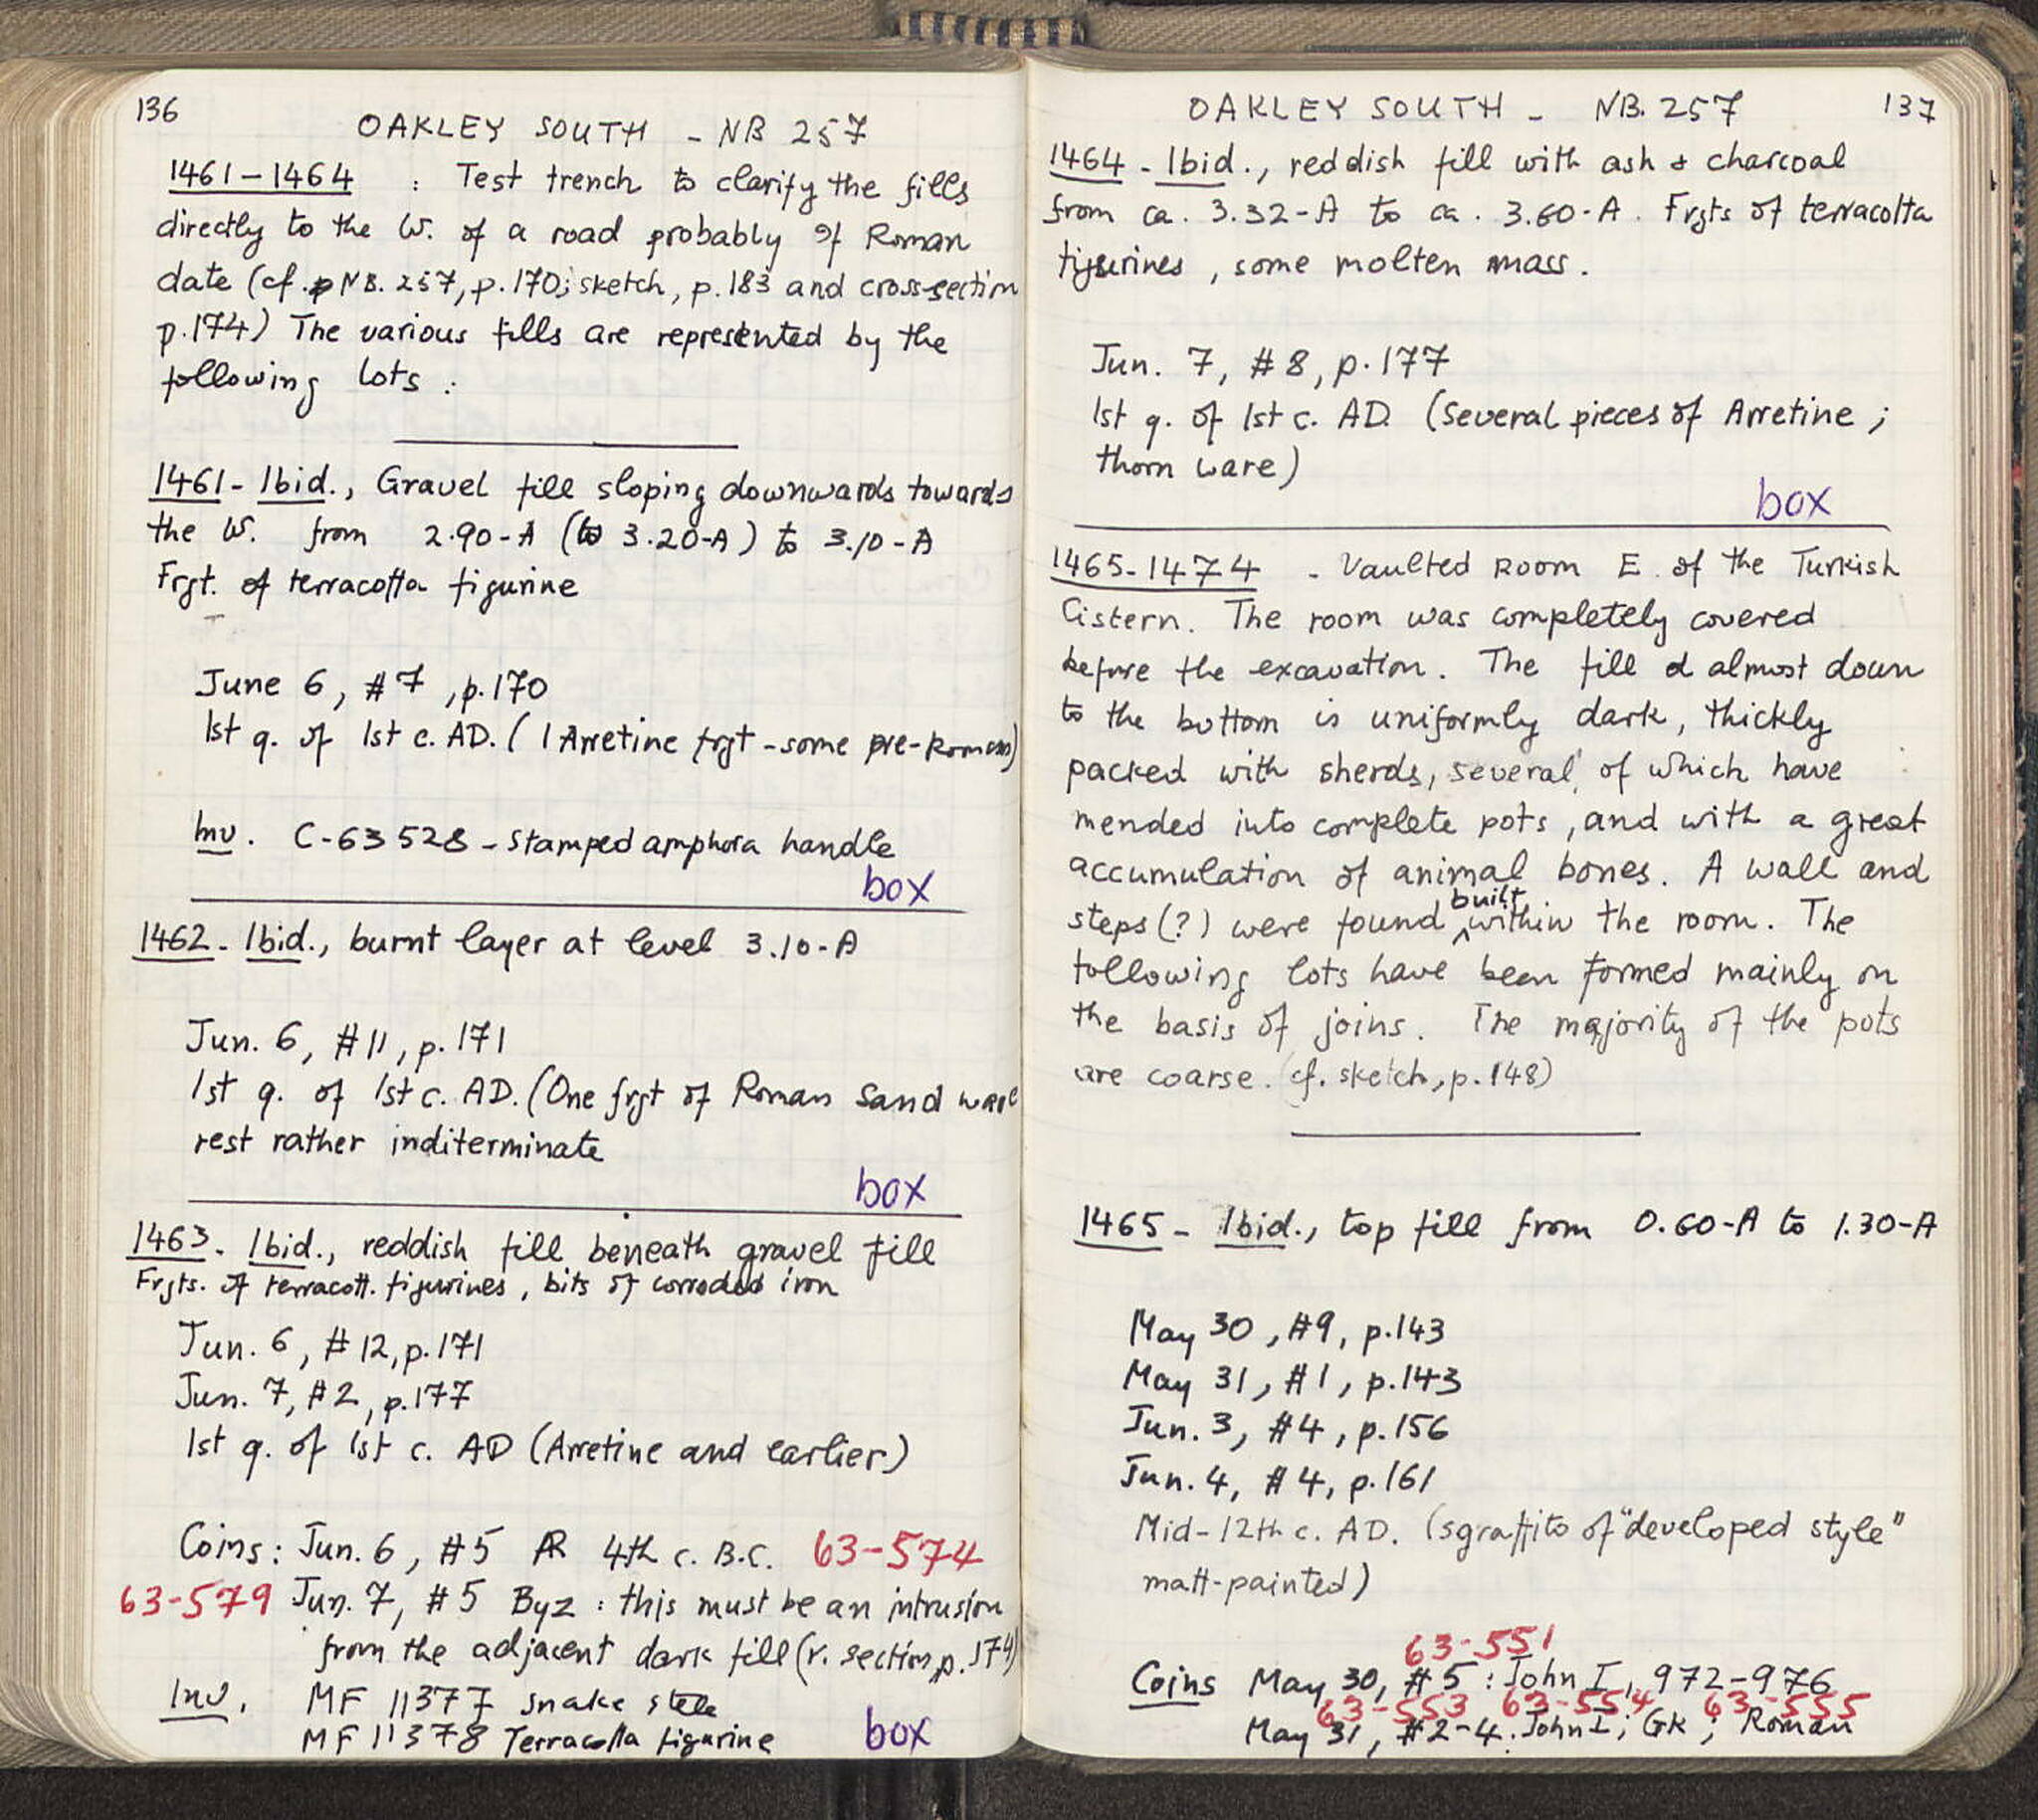 136
OAKLEY SOUTH - NB 257
1461-1464 : Test trench to clarify the fills
directly to the W. of a road probably of Roman
date (cf. NB. 257, p.170; sketch, p.183 and cross-section
p.174) The various fills are represented by the
following lots :
1461- Ibid., Gravel fill sloping downwards towards
the W. from 2.90-A (to 3.20-A) to 3.10-A
Frgt. of terracotta figurine
June 6, #7, p.170
1st q. of 1st c. AD. (1 Arretine frgt - some pre-Roman)
Inv. C-63 528 - Stamped amphora handle
box
1462- Ibid., burnt layer at level 3.10-A
Jun. 6, #11, p.171
1st q. of 1st c. AD. (One frgt of Roman Sand ware
rest rather inditerminate
box
1463- Ibid., reddish fill beneath gravel fill
Frgts. of terracott. figurines, bits of corroded iron
Jun. 6, #12, p.171
Jun. 7, #2, p.177
1st q. of 1st c. AD (Arretine and earlier)
Coins: Jun. 6, #5 AR 4th c. B.C. 63-574
63-579 Jun. 7, #5 Byz : this must be an intrusion
from the adjacent dark fill (v. section p.174)
Inv. MF 11377 snake stele
MF 11378 Terracotta figurine
box
OAKLEY SOUTH - NB. 257 137
1464 - Ibid., reddish fill with ash & charcoal
from ca. 3.32-A to ca. 3.60-A. Frgts of terracotta
figurines, some molten mass.
Jun. 7, #8, p.177
1st q. of 1st c. AD. (Several pieces of Arretine ;
thorn ware)
box
1465-1474 - Vaulted Room E. of the Turkish
Cistern. The room was completely covered
before the excavation. The fill almost down
to the bottom is uniformly dark, thickly
packed with sherds, several of which have
mended into complete pots, and with a great
accumulation of animal bones. A wall and
steps(?) were found built within the room. The
following lots have been formed mainly on
the basis of joins. The majority of the pots
are coarse. (cf. sketch, p.148)
1465 - Ibid., top fill from 0.60-A to 1.30-A
May 30, #9, p.143
May 31, #1, p.143
Jun. 3, #4, p.156
Jun. 4, #4, p.161
Mid-12th c. AD. (sgraffito of "developed style"
matt-painted)
63-551
Coins May 30, #5 : John I, 972-976
63-553 63-554 63-555
May 31, #2-4: John I; GK ; Roman